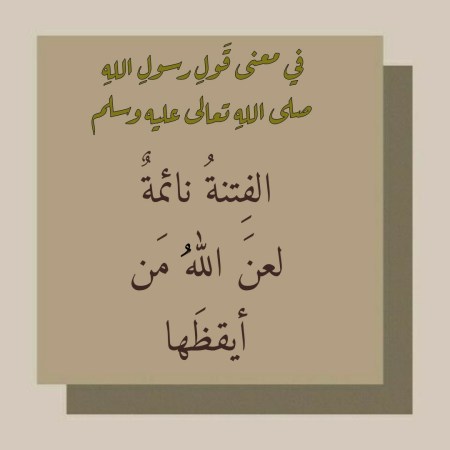 في معنى قَولِ رسولِ اللهِ
صلى اللهِ تعالى عليه وسلم
الفِتنةُ نائمةٌ
لعنَ اللهُ مَن
أيقظَها